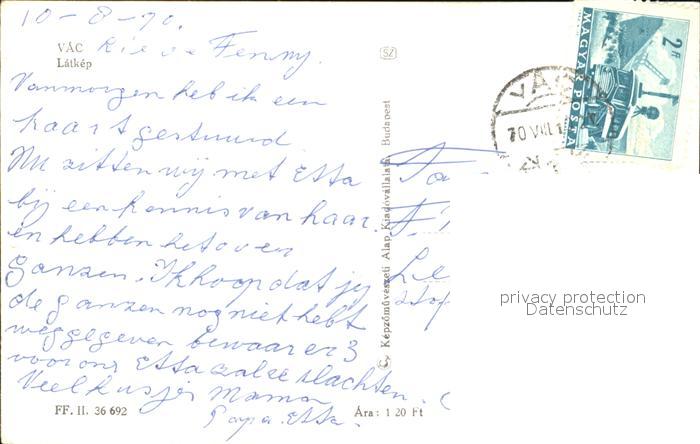 10-8-70.
VÁC
Látkép
Lieve Fenny.
Vanmorgen heb ik een
kaart gestuurd
Nu zitten wij met Etta
bij een kennis van haar.
en hebben het over
ganzen. Ik hoop dat jij
de ganzen nog niet hebt
weggegeven bewaar er 3
voor ons Etta zal ze slachten.
Veel kusjes Mama
Papa. Etta.
FF. II. 36 692
Ára: 1 20 Ft
SZ
© Képzőművészeti Alap Kiadóvállalata, Budapest
MAGYAR POSTA
2 Ft
VÁC
70 VIII. 1
privacy protection
Datenschutz